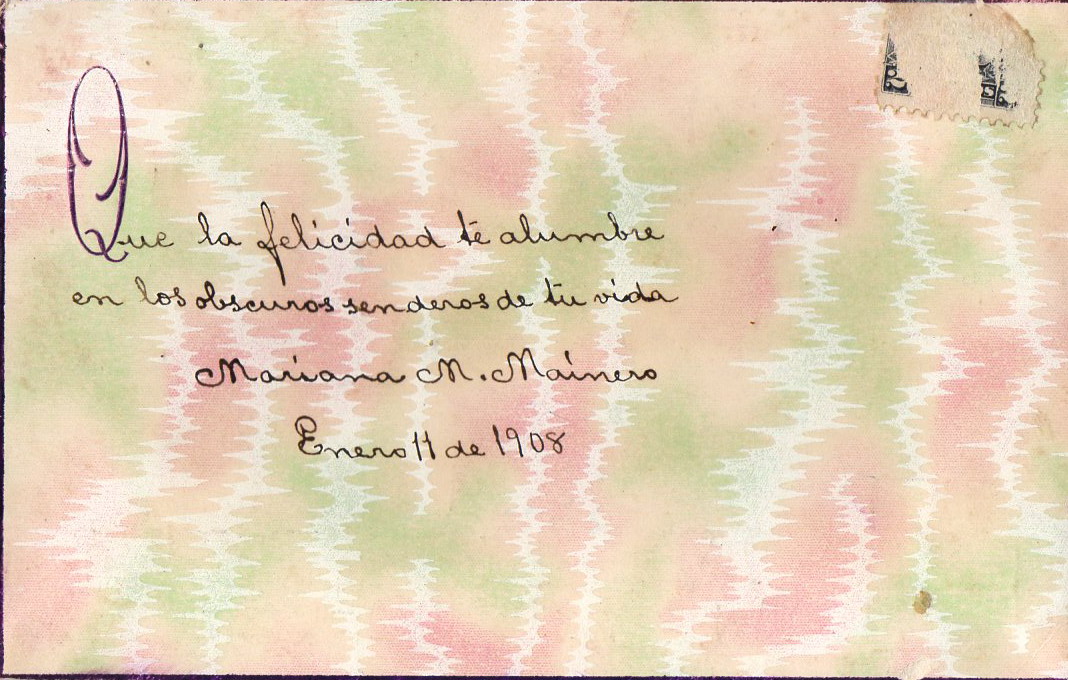 Que la felicidad te alumbre
en los obscuros senderos de tu vida
Mariana M. Mainero
Enero 11 de 1908